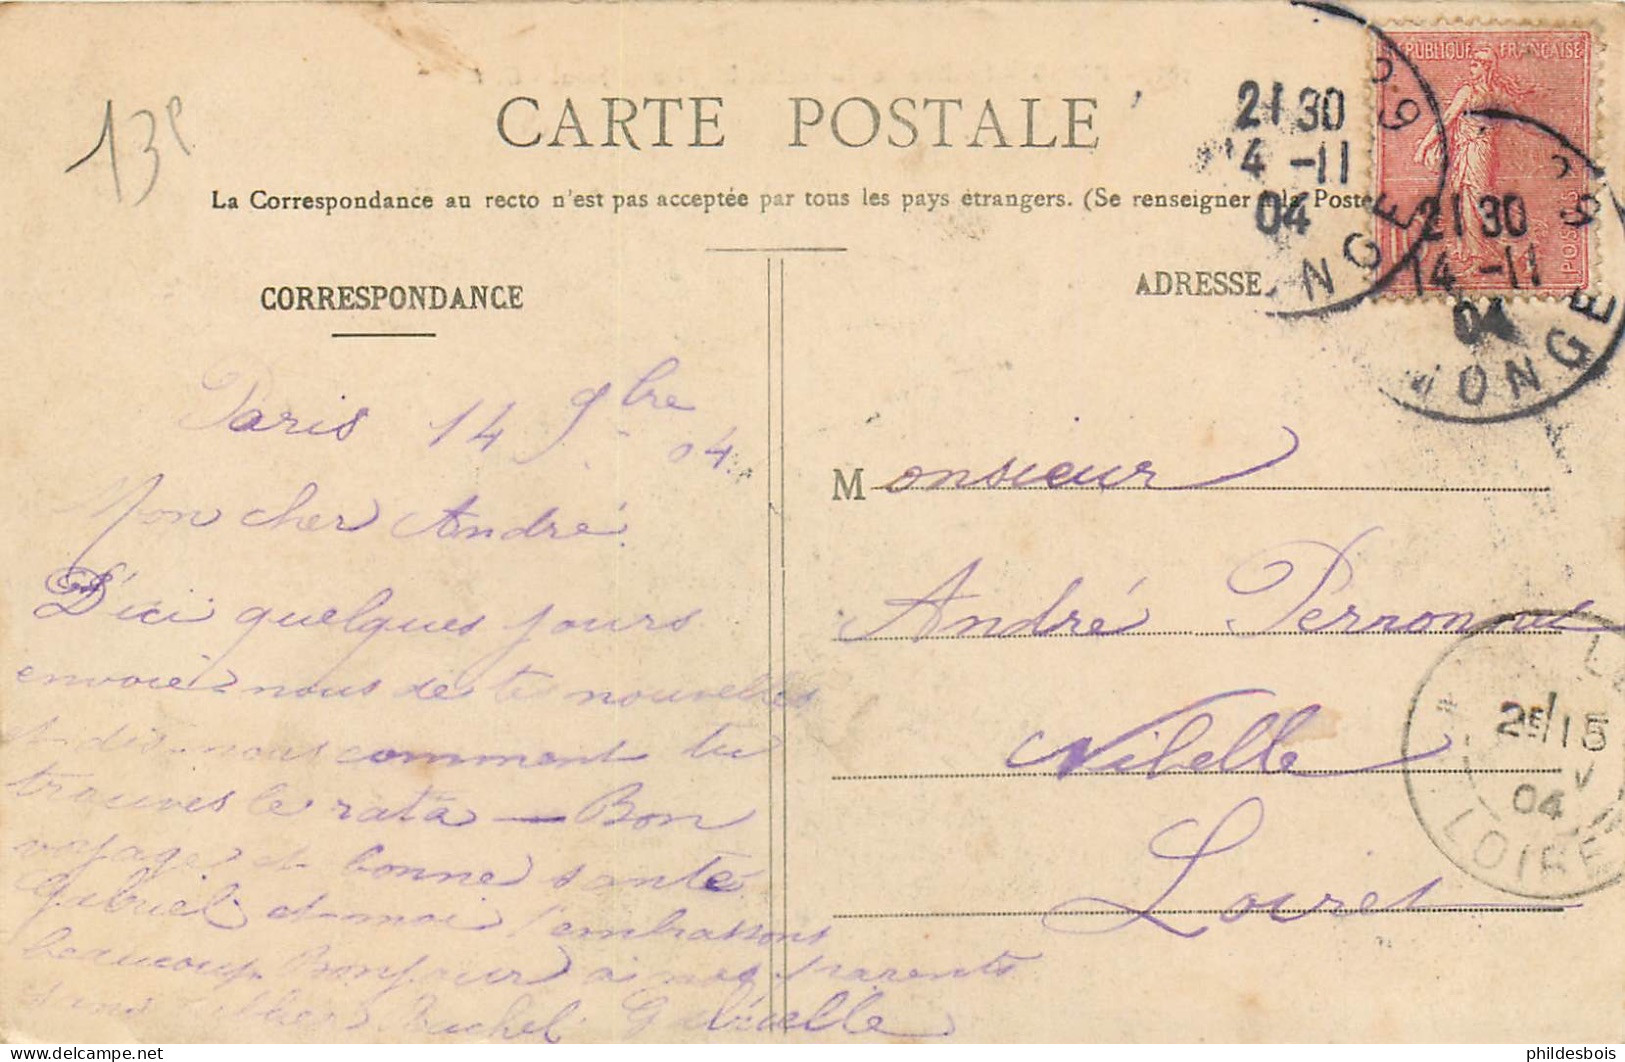 13e
CARTE POSTALE
La Correspondance au recto n'est pas acceptée par tous les pays étrangers. (Se renseigner à la Poste
RÉPUBLIQUE FRANÇAISE
POSTES
21 30
14 -11
04
MONGE
21 30
14 -11
04
MONGE
CORRESPONDANCE
Paris 14 9bre 04
Mon cher André
D'ici quelques jours
envoie nous de tes nouvelles
et dis-nous comment tu
trouves le rata — Bon
voyage et bonne santé
Gabriel et moi t'embrassons
beaucoup Bonjour à nos parents
sans Michel Gabrielle
ADRESSE
Monsieur
André Pernonnet
Nibelle
Loiret
2E/15
04
LOIRET
phildesbois